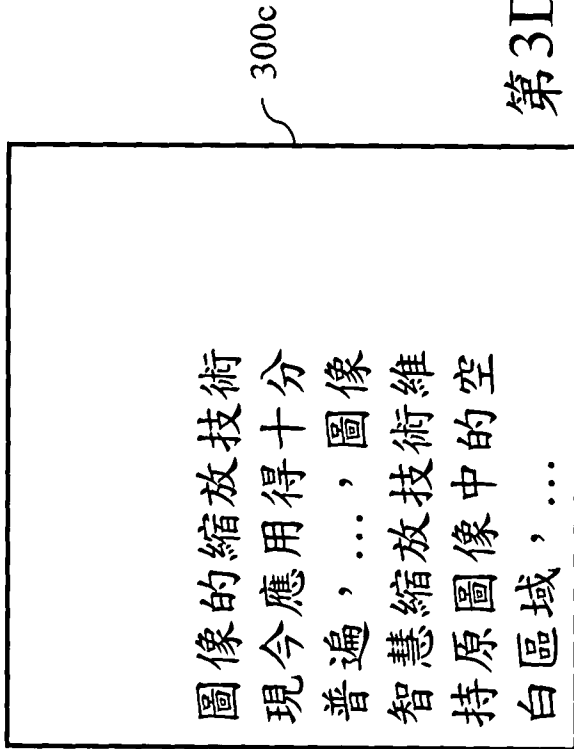 圖像的縮放技術
現今應用得十分
普遍，…，圖像
智慧縮放技術維
持原圖像中的空
白區域，…
300c
第3D